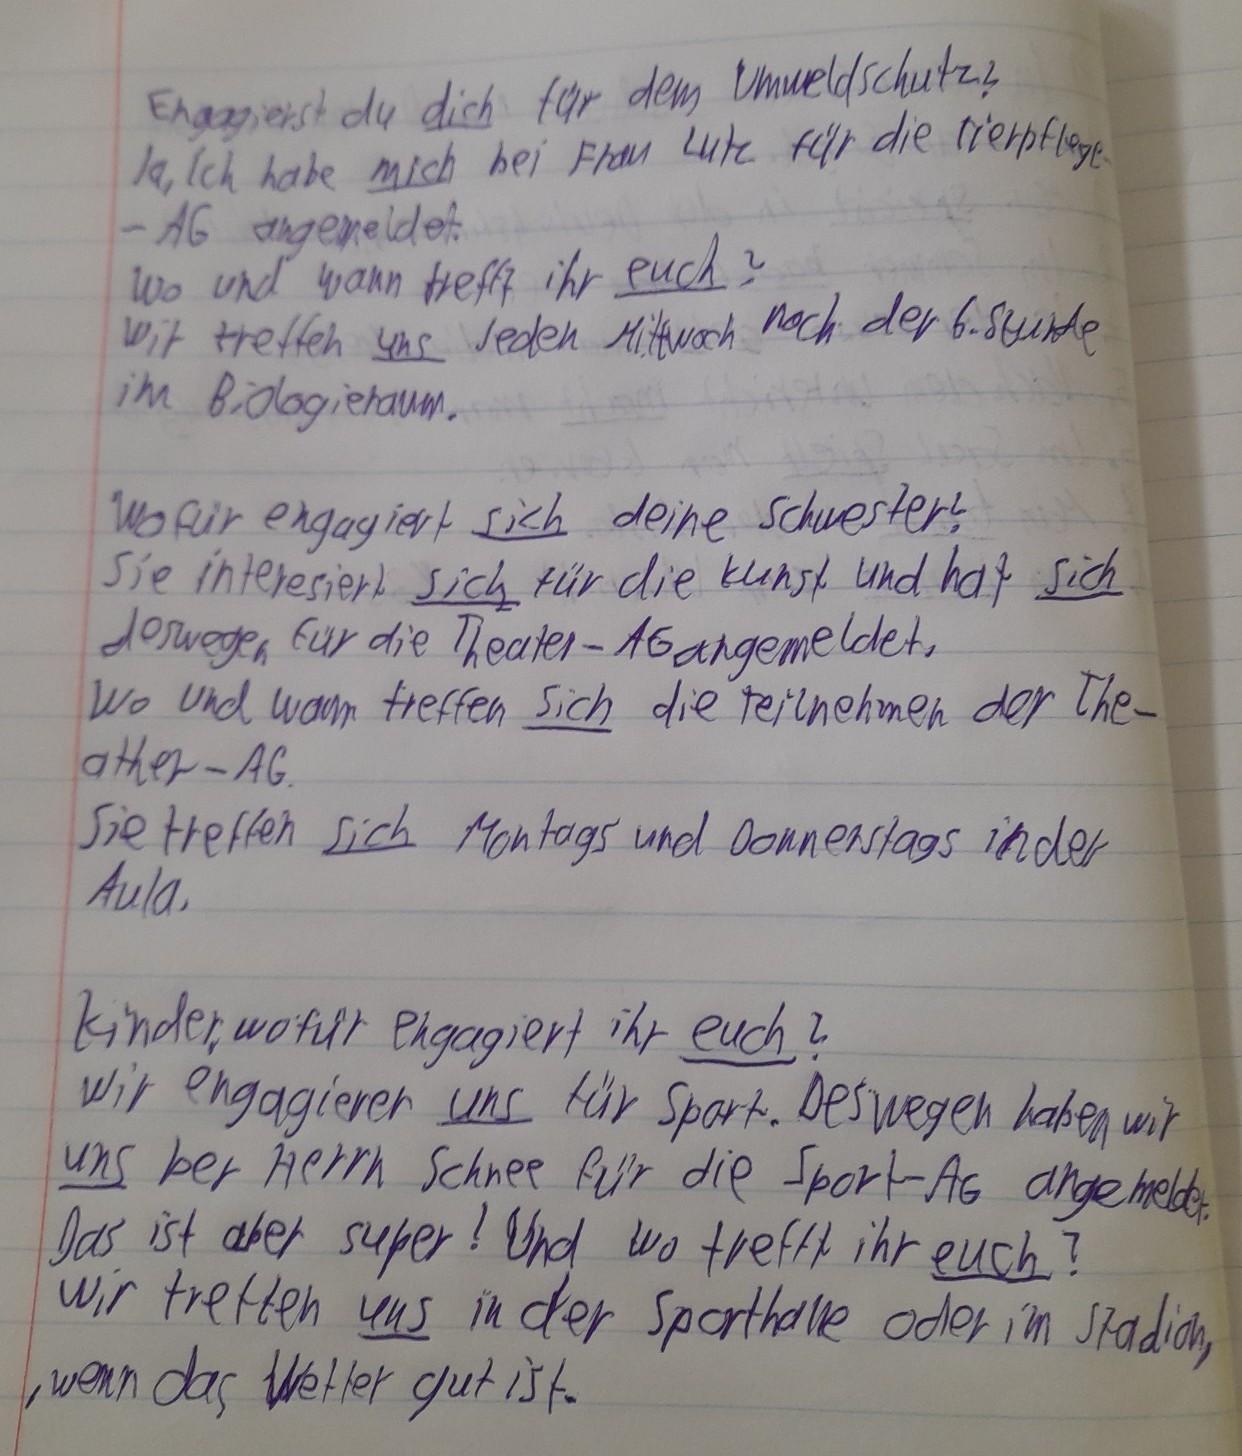 Engagierst du dich für dem Umweldschutz?
Ja, Ich habe mich bei Frau Lutz für die Tierpflege-
- AG angemeldet.
Wo und wann trefft ihr euch?
Wir treffen uns Jeden Mittwoch nach der 6. Stunde
im Biologieraum.
Wofür engagiert sich deine Schwester?
Sie interesiert sich für die Kunst und hat sich
deswegen für die Theater-AG angemeldet.
Wo und wann treffen sich die Teilnehmen der The-
ather-AG.
Sie treffen sich Montags und Donnerstags in der
Aula.
Kinder, wofür engagiert ihr euch?
Wir engagieren uns für Sport. Deswegen haben wir
uns ber Herrn Schnee für die Sport-AG angemeldet.
Das ist aber super! Und wo trefft ihr euch?
Wir treffen uns in der Sporthalle oder im Stadion,
, wenn das Wetter gut ist.